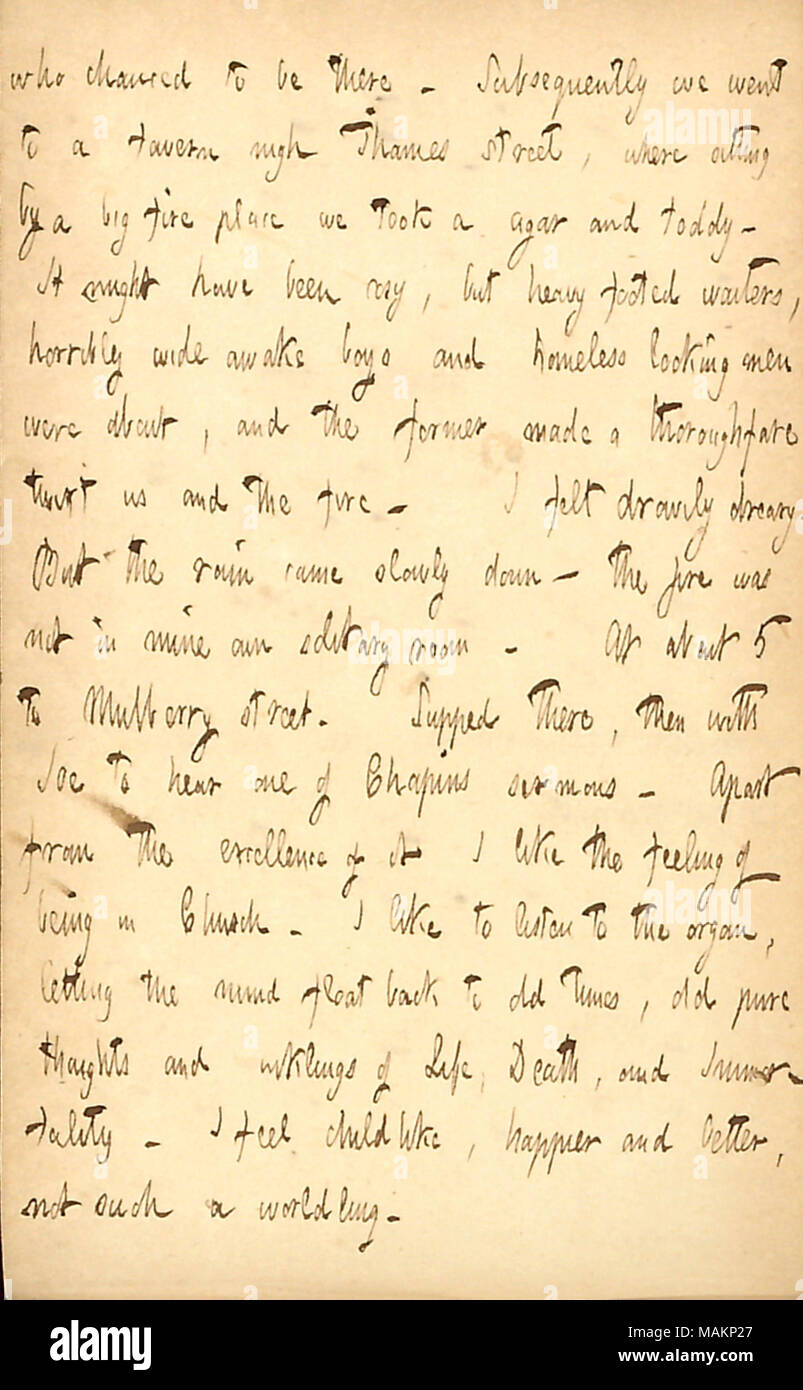 who chanced to be there - Subsequently we went
to a tavern nigh Thames street, where sitting
by a big fire place we took a cigar and toddy -
It might have been cosy, but heavy footed waiters,
horribly wide awake boys and homeless looking men
were about, and the former made a thoroughfare
twixt us and the fire - I felt drowsily dreary.
But the rain came slowly down - the fire was
not in mine own solitary room - At about 5
to Mulberry street. Supped there, then with
Joe to hear one of Chapins sermons - Apart
from the excellence of it I like the feeling of
being in Church - I like to listen to the organ,
letting the mind float back to old times, old pure
thoughts and inklings of Life, Death, and Immor-
tality - I feel childlike, happier and better,
not such a worldling -
alamy
Image ID: MAKP27
www.alamy.com